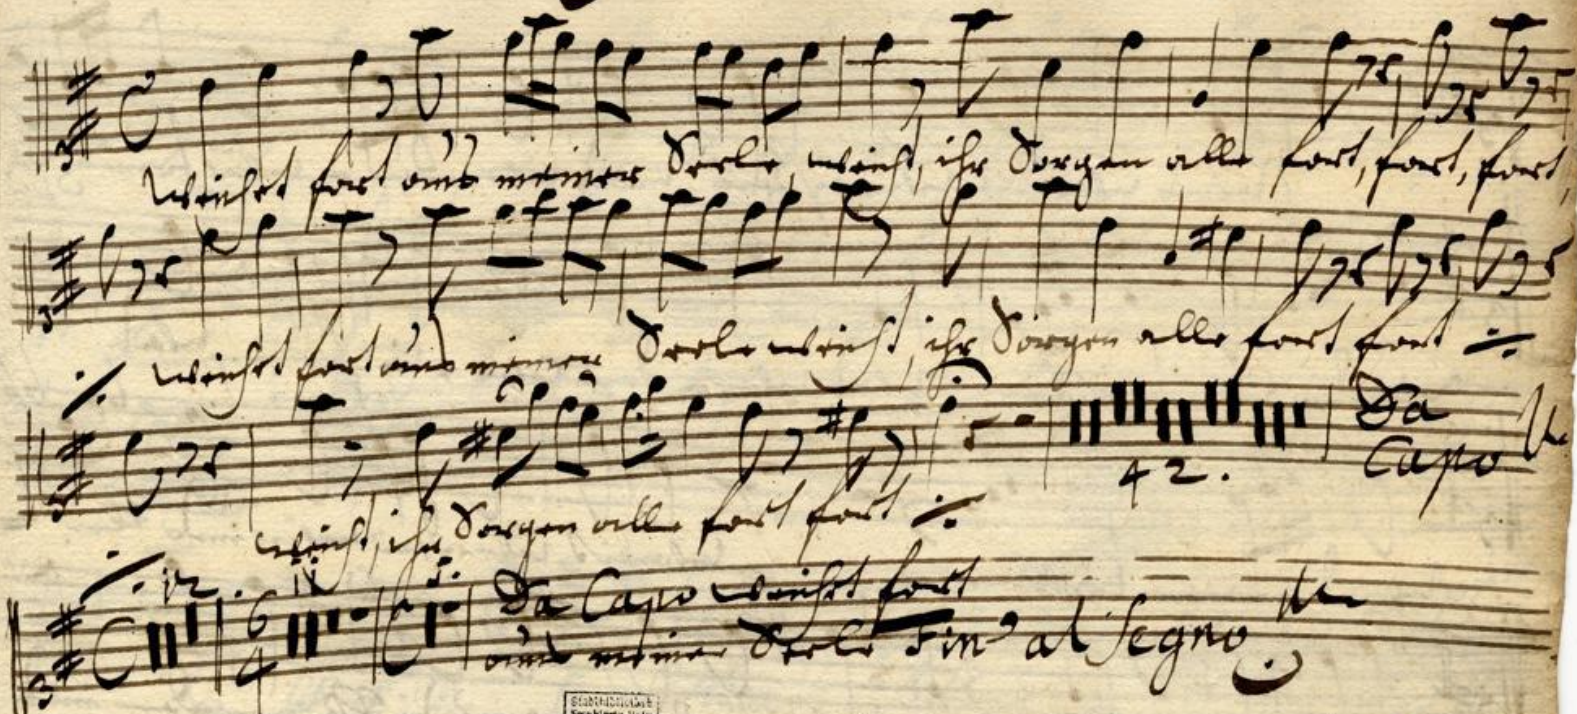 Weichet fort aus meiner Seele, weicht, ihr Sorgen alle fort, fort, fort,
weichet fort aus meiner Seele weicht, ihr Sorgen alle fort fort
Da
Capo
42.
weicht, ihr Sorgen alle fort fort
12. 11 5.
6
4
Da Capo weichet fort
aus meiner Seele Fin' al Segno